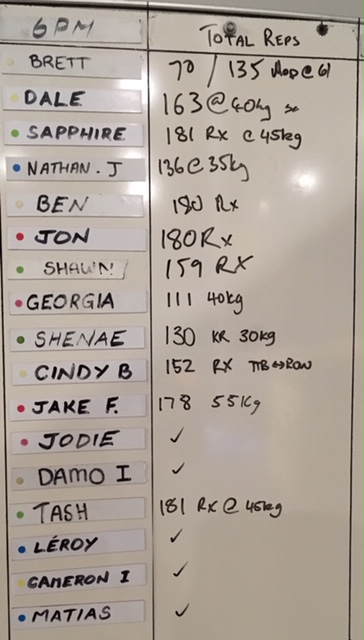 6PM TOTAL REPS
BRETT 70 / 135 @ 61
DALE 163 @ 40kg
SAPPHIRE 181 RX @ 45kg
NATHAN.J 136 @ 35kg
BEN 180 Rx
JON 180 Rx
SHAWN 159 RX
GEORGIA 111 40kg
SHENAE 130 KR 30kg
CINDY B 152 RX TTB↔ROW
JAKE F. 178 55Kg
JODIE ✓
DAMO I ✓
TASH 181 RX @ 45kg
LEROY ✓
CAMERON I ✓
MATIAS ✓